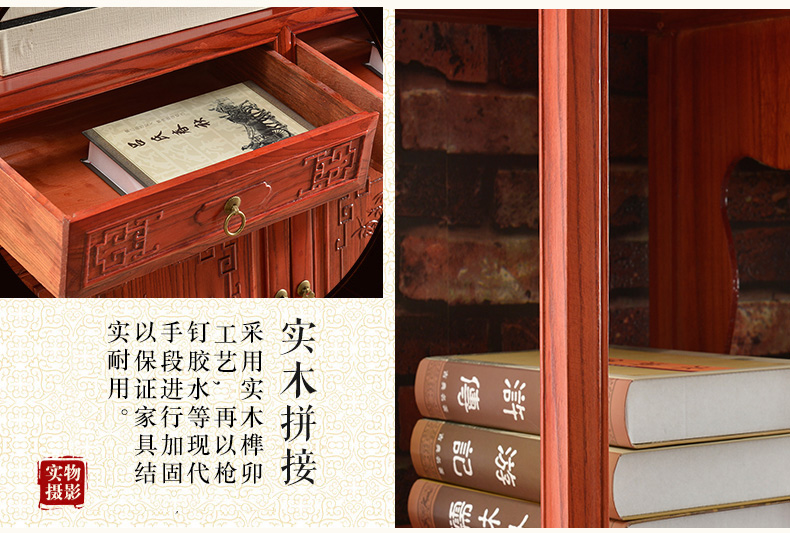 实木拼接
采用实木榫卯
工艺，再以枪
钉胶水等现代
手段进行加固
以保证家具结
实耐用。
实物
摄影
吕氏春秋
浒
傳
游
記